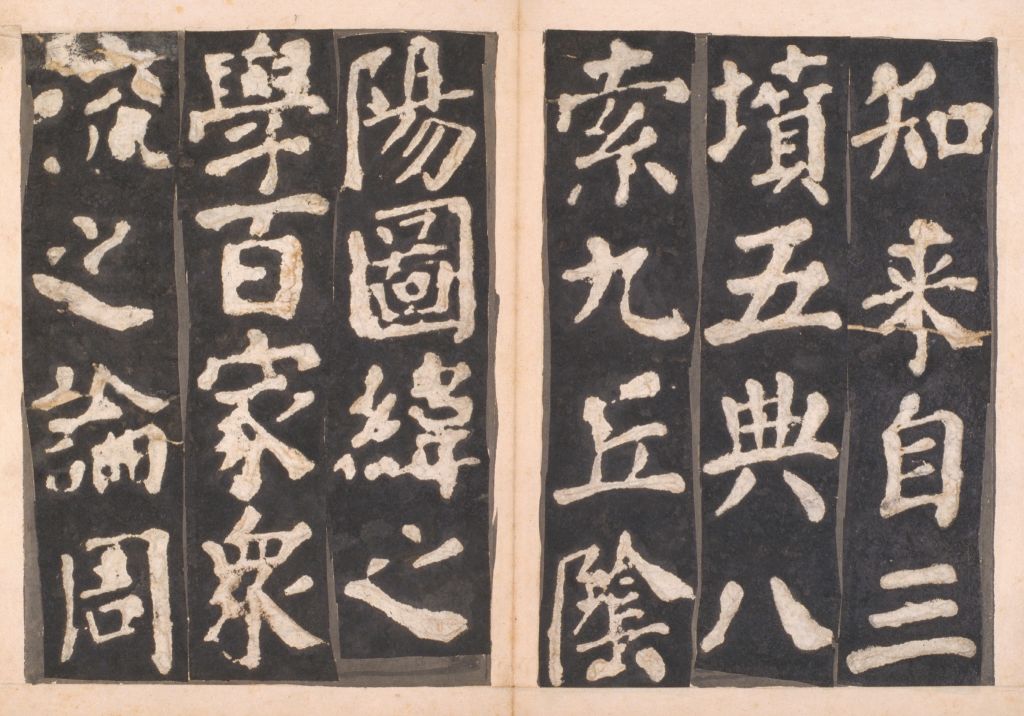 知来自三
墳五典八
索九丘陰
陽圖緯之
學百家衆
流之論周